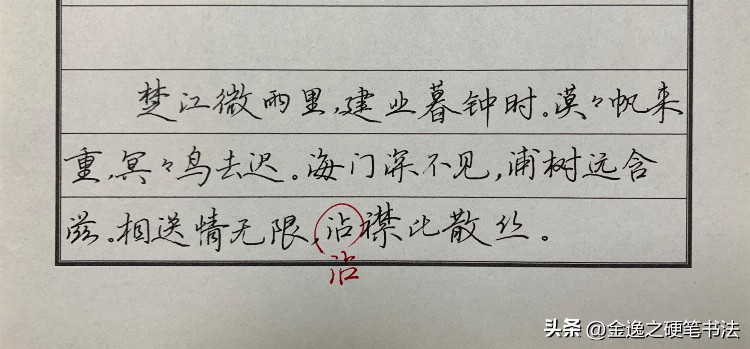 楚江微雨里,建业暮钟时。漠々帆来
重,冥々鸟去迟。海门深不见,浦树远含
滋。相送情无限,沾襟比散丝。
沾
头条 @金逸之硬笔书法